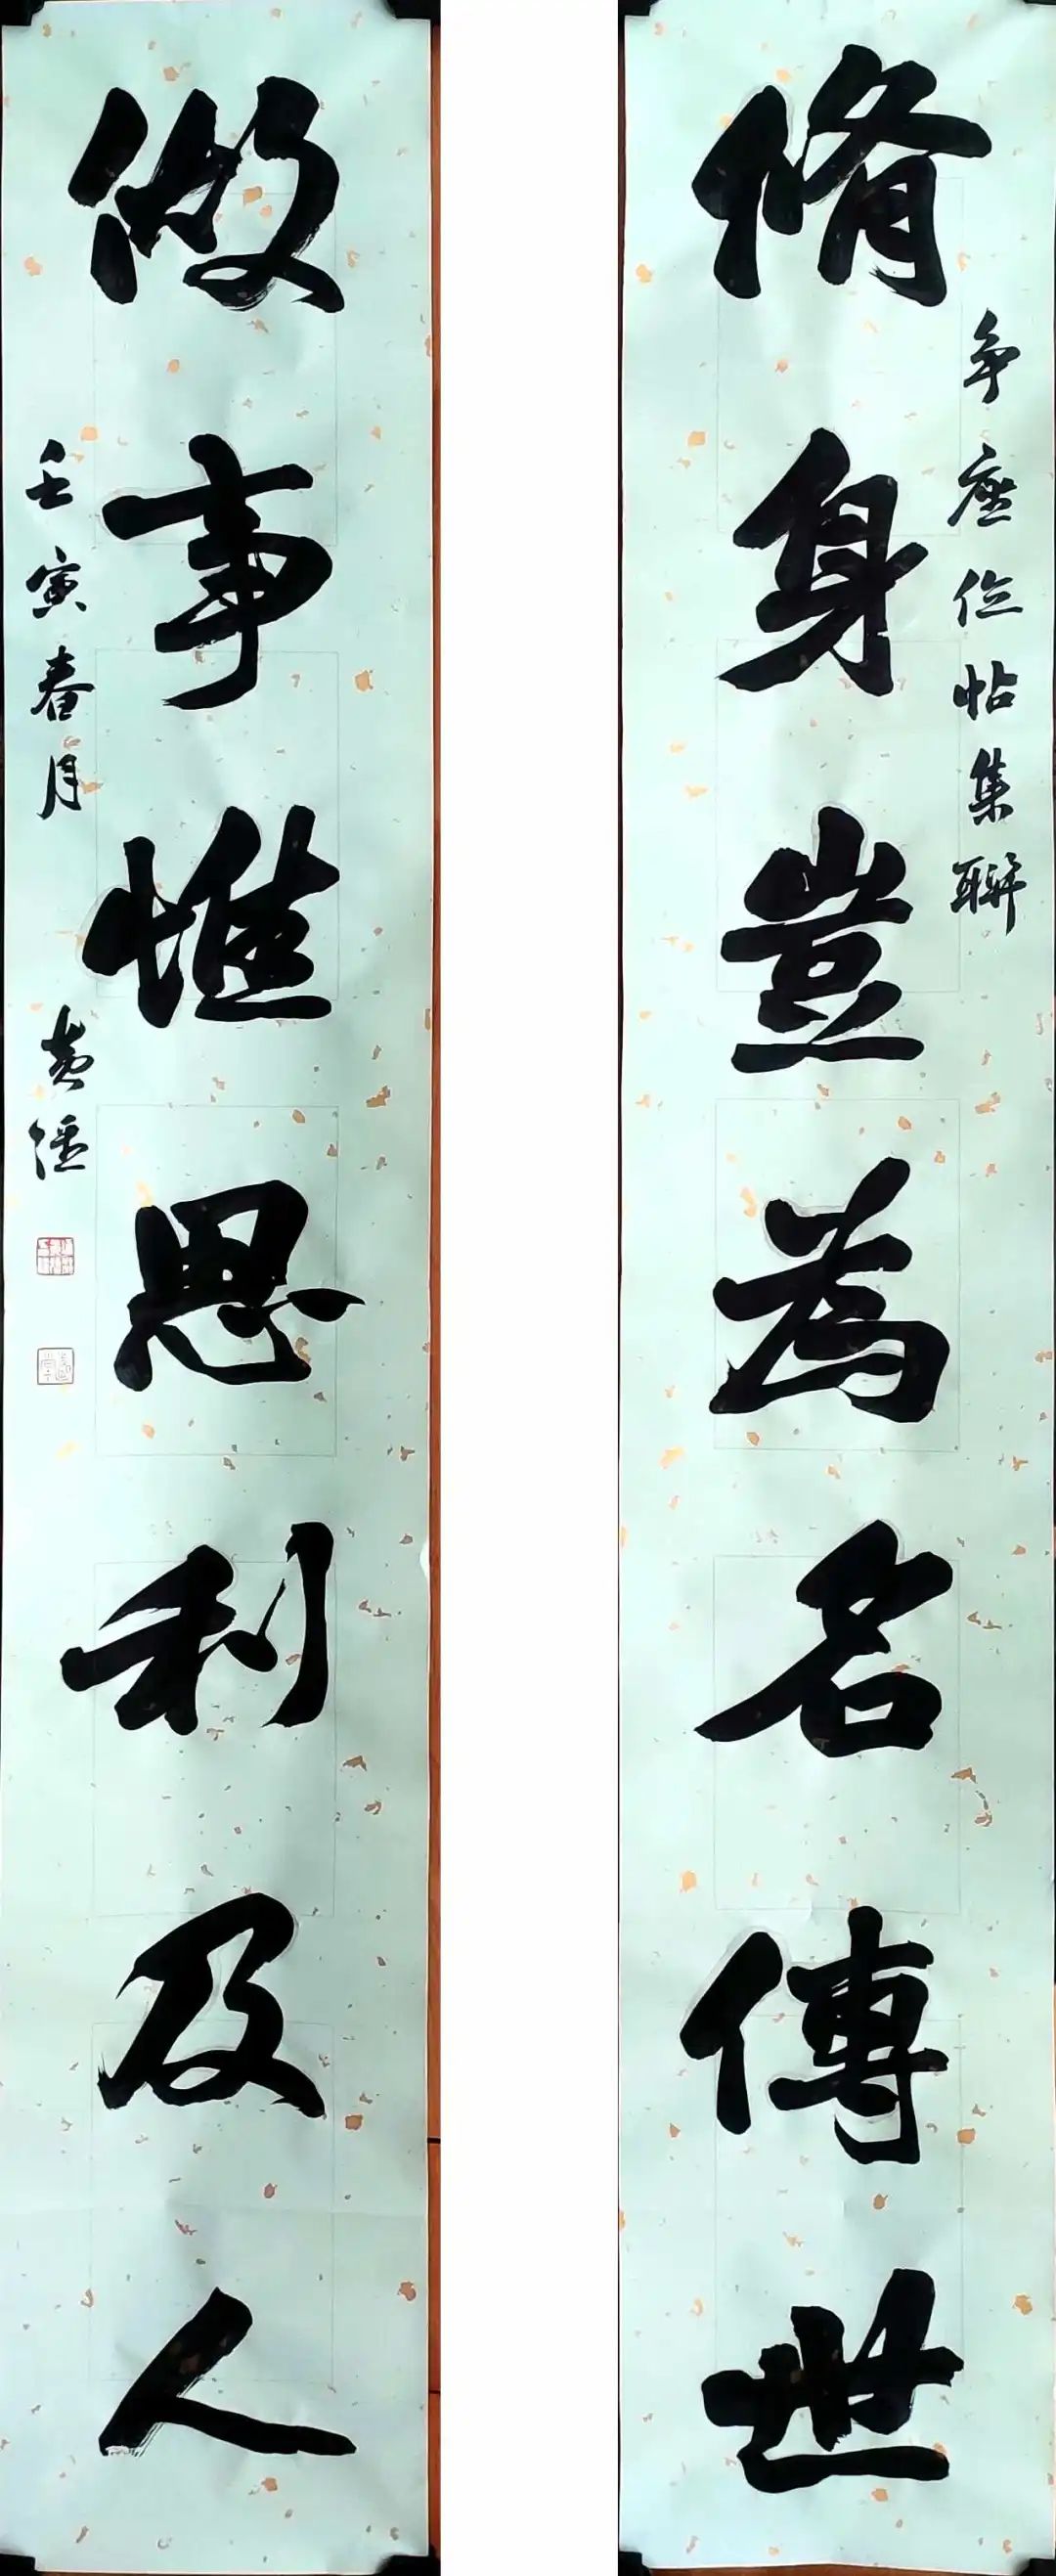 脩身豈為名傳世
争座位帖集聯
做事惟思利及人
壬寅春月
黄